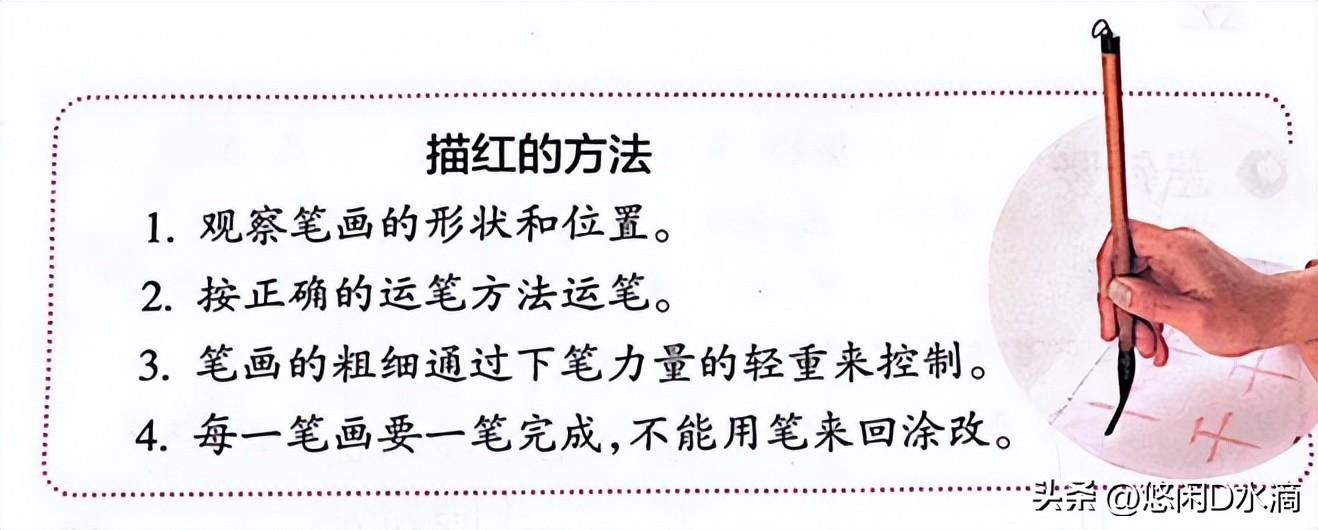 描红的方法
1. 观察笔画的形状和位置。
2. 按正确的运笔方法运笔。
3. 笔画的粗细通过下笔力量的轻重来控制。
4. 每一笔画要一笔完成,不能用笔来回涂改。
头条 @悠闲D水滴